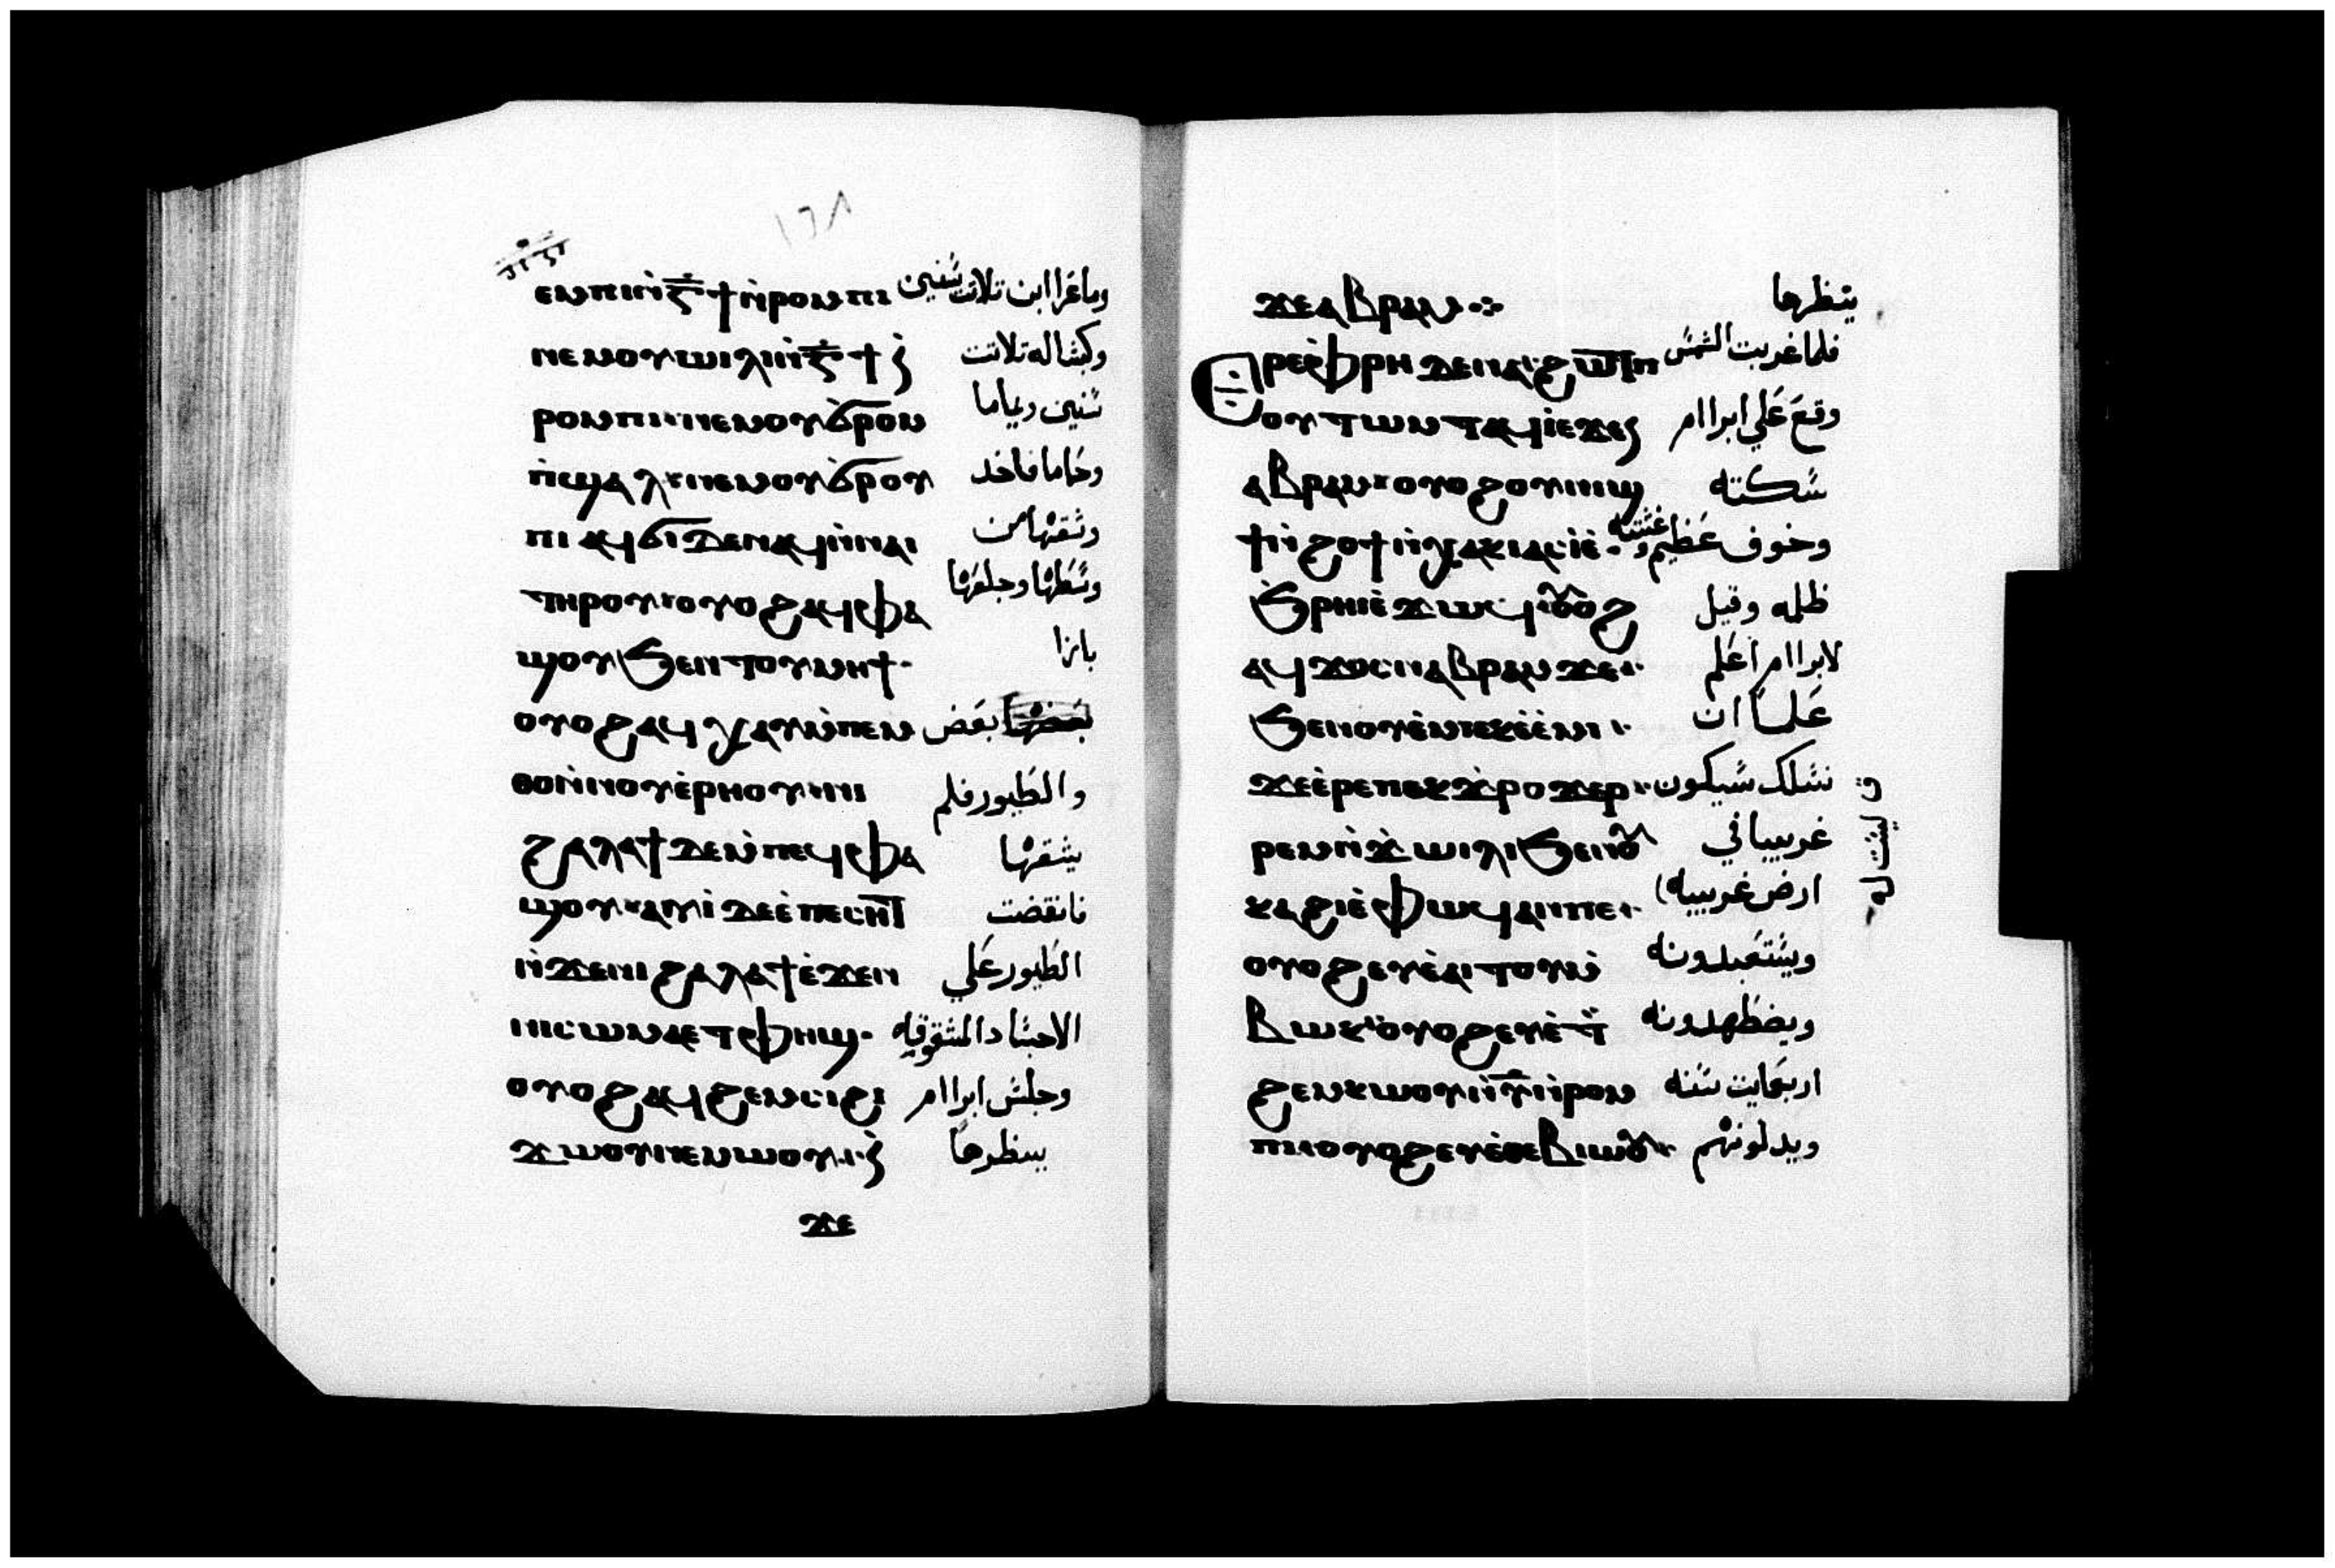 ١٦٨
ⲉⲙⲡⲓⲛ̀ⲅ̅ϯⲛ̀ⲣⲟⲙⲡⲓ وماعزا ابن تلات سنين
ⲛⲉⲙⲟⲩⲱⲓⲗⲓⲛ̀ⲅ̅ϯⲛ̀ وكبشا له تلاتت
ⲣⲟⲙⲡⲓ·ⲛⲉⲙⲟⲩϭ̀ⲣⲟⲙ سنين ويماما
ⲡ̀ϣⲁⲗ·ⲛⲉⲙⲟⲩϭ̀ⲣⲟⲩ وحماما فاخد
ⲡⲓ ⲁϥϭⲓⲇⲉⲛⲁϥⲛ̀ⲛⲁⲓ وشقها من
ⲧⲏⲣⲟⲩ·ⲟⲩⲟϩⲁϥⲫⲁ وسطها وجلعها
ϣⲟⲩϧⲉⲛⲧⲟⲩⲙⲏϯ· بازا
ⲟⲩⲟϩⲁϥⲭⲁⲩⲙ̀ⲡⲉⲙ بعضها بعض
ⲑⲟⲛ̀ⲛⲟⲩⲉ̀ⲣⲏⲟⲩ·ⲛⲓ والطيور فلم
ϩⲁⲗⲁϯⲇⲉⲙ̀ⲡⲉϥⲫⲁ يشقها
ϣⲟⲩ·ⲁⲩⲓ̀ⲇⲉⲉ̀ⲡⲉⲥⲏⲧ فانقضت
ⲛ̀ϫⲉⲛⲓϩⲁⲗⲁϯⲉ̀ϫⲉⲛ الطيور علي
ⲛⲓⲥⲱⲙⲁⲉⲧⲫⲏϣ· الاجشاد المشقوقه
ⲟⲩⲟϩⲁϥϩⲉⲙⲥⲓϩⲓ وجلش ابراام
ϫⲱⲟⲩⲛⲉⲙⲱⲟⲩ·ⲛ̀ ينظرها
ϫⲉ
ϫⲉⲁⲃⲣⲁⲙ⁘ ينظرها
Ⲉⲣⲉⲫ̀ⲣⲏⲇⲉⲛⲁϩⲱⲧⲡ فلما غربت الشمش
ⲟⲩⲧⲱⲙⲧⲁϥⲓ̀ⲉ̀ϫⲉⲛ وقع علي ابراام
ⲁⲃⲣⲁⲙ·ⲟⲩⲟϩⲟⲩⲛⲓϣ شكته
ϯⲛ̀ϩⲟϯⲛ̀ⲭⲁⲕⲓⲁⲥⲓ̀ⲉ̀· وخوف عظيم و غشته
ϧ̀ⲣⲏⲓⲉ̀ϫⲱϥ·ⲟⲩⲟϩ ظلمه وقيل
ⲁϥϫⲟⲥⲛⲁⲃⲣⲁⲙϫⲉ· لابراام اعلم
ϧⲉⲛⲟⲩⲉ̀ⲙⲓⲉⲕⲉ̀ⲉ̀ⲙⲓ· علما ان
ϫⲉⲉ̀ⲣⲉⲡⲉⲕϫ̀ⲣⲟϫⲉⲣ· نشلك شيكون
ⲣⲉⲙⲛ̀ϫⲱⲓⲗⲓϧⲉⲛⲟⲩ غريبا في
ⲕⲁϩⲓⲉ̀ⲫⲱϥⲁⲛⲡⲉ· ارض غريبه
ليشت له
ⲟⲩⲟϩⲉⲩⲉ̀ⲁⲓⲧⲟⲩⲙ̀ ويشتعبدونه
ⲃⲱⲕ·ⲟⲩⲟϩⲉⲩⲉ̀ⲧ ويضطهدونه
ϩⲉⲙⲕⲱⲟⲩⲛ̀ⲩ̅ⲛ̀ⲣⲟⲙ اربعمايت سنه
ⲡⲓ·ⲟⲩⲟϩⲉⲩⲉ̀ⲑⲉⲃⲓⲱⲟⲩ· ويدلونهم